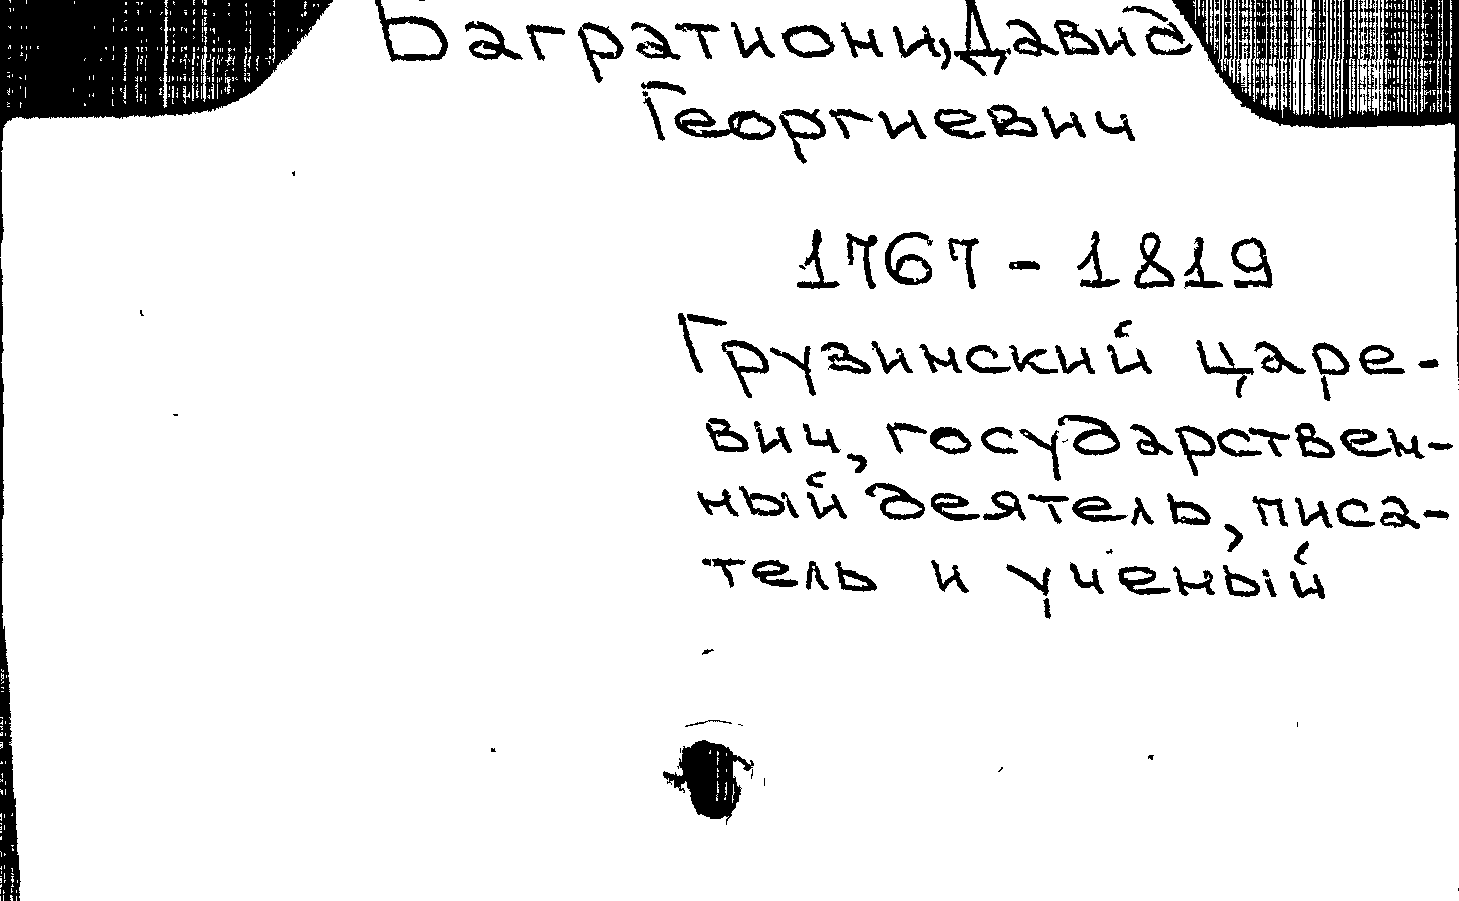 Багратиони, Давид
Георгиевич
1767 - 1819
Грузинский царе-
вич, государствен-
ный деятель, писа-
тель и ученый